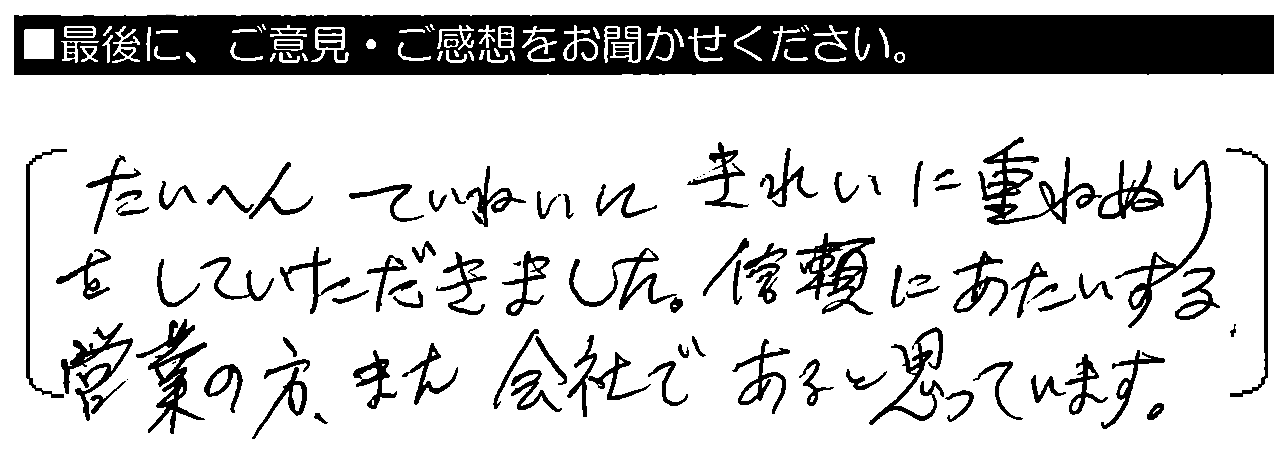 ■最後に、ご意見・ご感想をお聞かせください。
たいへん ていねいに きれいに重ねぬり
をしていただきました。信頼にあたいする
営業の方、また 会社で あると思っています。